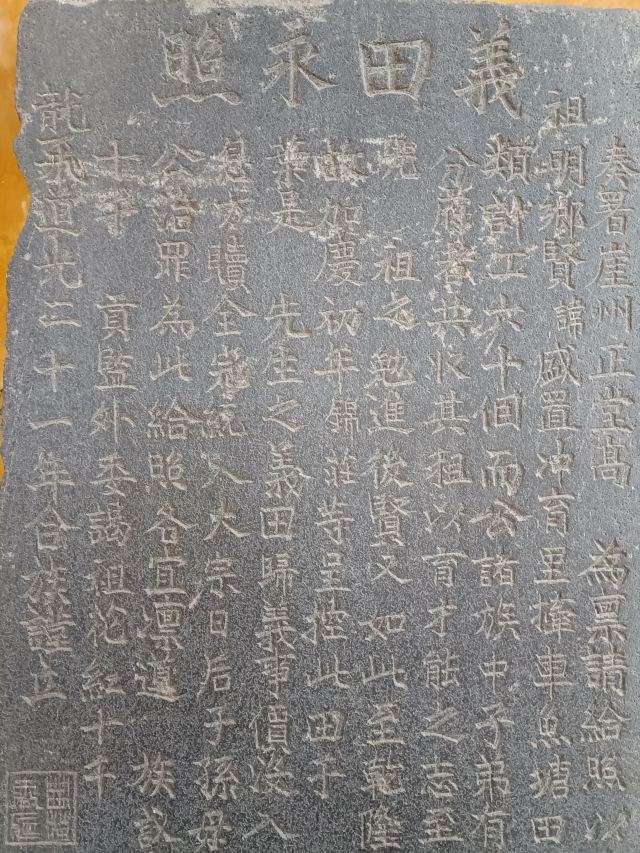 義田永照
奏署崖州正堂高 為禀請給照以
祖明鄉賢諱盛置冲育里 車魚塘田
類計工六十個而公諸族中子弟有
分 者共收其租以育才能之志至
祖之勉進後賢又如此至乾隆
故如慶初年錦莊等呈控此田于
葉是 先生之義田歸義爭價沒入
息 贖全 統入大宗日后子孫毋
公治罪為此給照各宜凛遵 族議
十千 貢監外委謁祖花紅十千
龍飛道光二十一年合族謹立